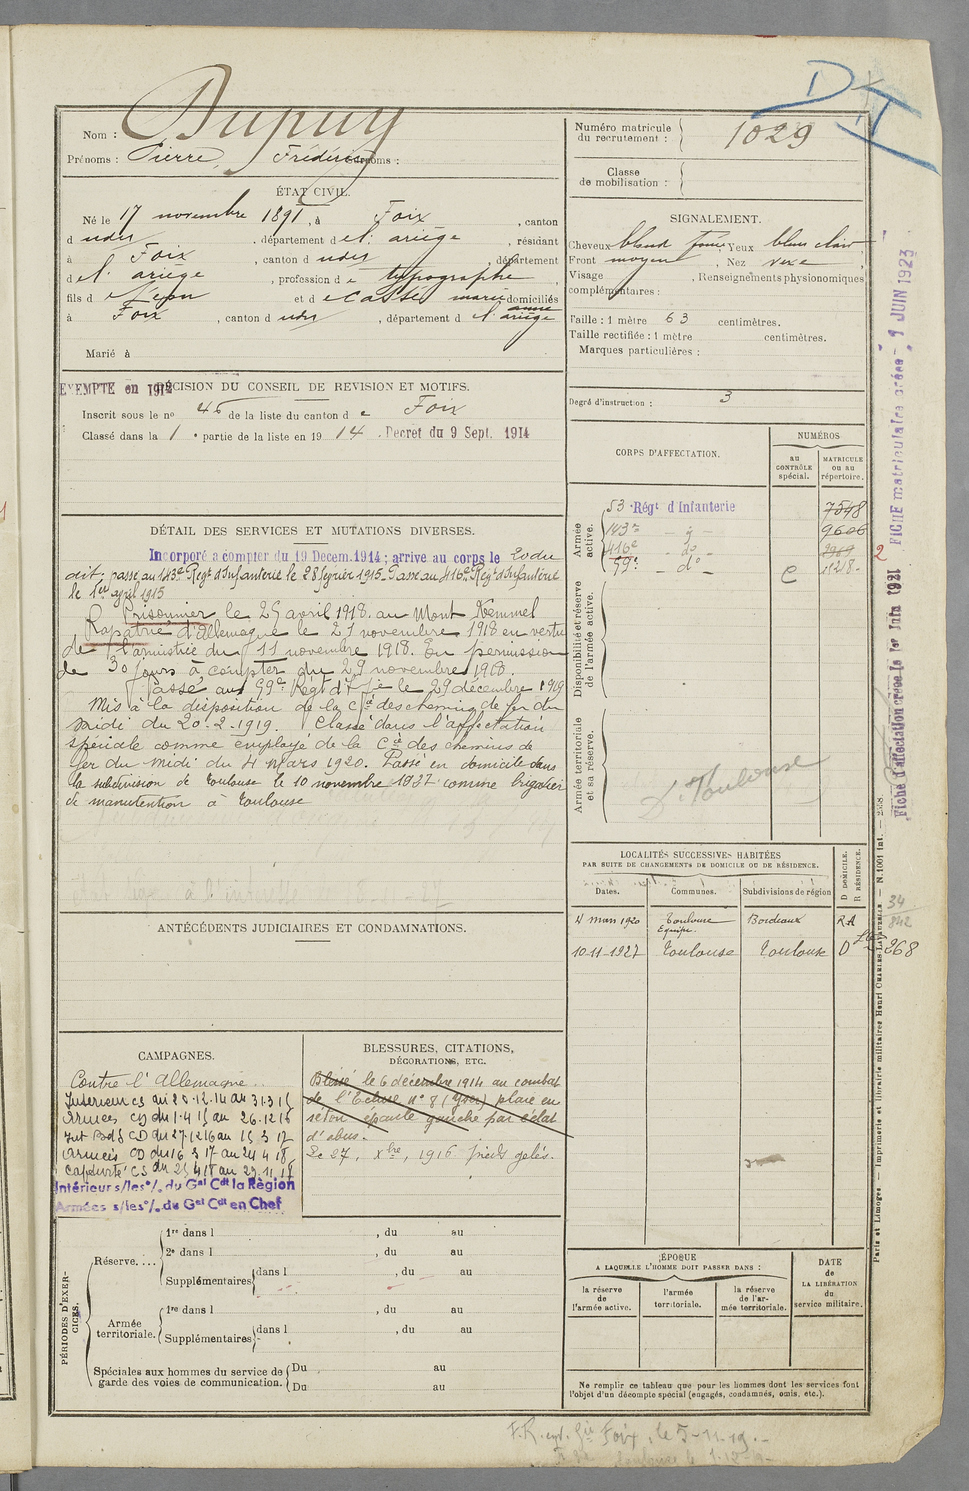 D
Nom : Dupuy
Prénoms : Pierre, Frédéric
Numéro matricule du recrutement : 1029
Classe de mobilisation :
ÉTAT CIVIL.
Né le 17 novembre 1891, à Foix, canton
d udit, département d e l'ariège, résidant
à Foix, canton d udit, département
d e l'ariège, profession d e typographe,
fils d e Léon et d e Cassé marie domiciliés
anne
à Foix, canton d udit, département d l'ariège
Marié à
SIGNALEMENT.
Cheveux blond Yeux bleu clair
Front moyen, Nez vexe,
Visage , Renseignements physionomiques
complémentaires :
Taille : 1 mètre 63 centimètres.
Taille rectifiée : 1 mètre centimètres.
Marques particulières :
Degré d'instruction : 3
EXEMPTE en 1912
DÉCISION DU CONSEIL DE REVISION ET MOTIFS.
Inscrit sous le no 46 de la liste du canton d e Foix
Classé dans la 1 e partie de la liste en 1914. Decret du 9 Sept. 1914
DÉTAIL DES SERVICES ET MUTATIONS DIVERSES.
Incorporé a compter du 19 Decem. 1914 ; arrive au corps le 20 du
dit, passé au 143e Regt d'Infanterie le 28 février 1915. Passé au 416e Regt d'Infanterie
le 1er avril 1915
Prisonnier le 25 avril 1918 au Mont Kemmel
Rapatrié d'Allemagne le 27 novembre 1918 en vertu
de l'armistice du 11 novembre 1918. En permission
de 30 jours à compter du 29 novembre 1918.
Passé au 59e Régt d'Ie le 29 décembre 1919
Mis à la disposition de la Cie des chemins de fer du
midi du 20-2-1919. Classé dans l'affectation
spéciale comme employé de la Cie des chemins de
fer du Midi du 4 mars 1920. Passé en domicile dans
la subdivision de Toulouse le 10 novembre 1927 comme brigadier
de manutention à Toulouse
CORPS D'AFFECTATION.
NUMÉROS
au CONTRÔLE spécial.
MATRICULE ou au répertoire.
Armée active.
53 Régt d'Infanterie 7548
143e - d° - 9606
416e - d° -
59e - d° - C 11218
Disponibilité et réserve de l'armée active.
Armée territoriale et sa réserve.
D. Toulouse
LOCALITÉS SUCCESSIVES HABITÉES
PAR SUITE DE CHANGEMENTS DE DOMICILE OU DE RÉSIDENCE.
Dates. Communes. Subdivisions de région D DOMICILE. R RÉSIDENCE.
4 mars 1920 Toulouse Bordeaux RA
Equipe.
10-11-1927 Toulouse Toulouse D
34
842
268
ANTÉCÉDENTS JUDICIAIRES ET CONDAMNATIONS.
CAMPAGNES.
Contre l'Allemagne.
Interieur CS du 20.12.14 au 31.3.15
Armées CD du 1.4.15 au 26.12.16
Int Bd S CD du 27.12.16 au 15 3 17
Armées CD du 16 3 17 au 24 4 18
Captivité CS du 25 4 18 au 27.11.18
Intérieur s/les°/. du Gal Cdt la Règion
Armées s/les°/. du Gal Cdt en Chef
BLESSURES, CITATIONS,
DÉCORATIONS, ETC.
Blessé le 6 décembre 1914 au combat
de l'Ecluse n° 8 (Yser) plaie en
séton épaule gauche par éclat
d'obus.
Le 27, Xbre, 1916 pieds gelés.
PÉRIODES D'EXERCICES.
Réserve....
1re dans l , du au
2e dans l , du au
Supplémentaires dans l , du au
Armée territoriale.
1re dans l , du au
Supplémentaires dans l , du au
Spéciales aux hommes du service de garde des voies de communication.
Du au
Du au
ÉPOQUE
A LAQUELLE L'HOMME DOIT PASSER DANS :
la réserve de l'armée active.
l'armée territoriale.
la réserve de l'armée territoriale.
DATE de LA LIBÉRATION du service militaire.
Ne remplir ce tableau que pour les hommes dont les services font
l'objet d'un décompte spécial (engagés, condamnés, omis, etc.).
FICHE matriculaire créée - 1 JUIN 1923
2
Fiche d'affectation créée le 1er Juin 1921
Paris et Limoges. — Imprimerie et librairie militaires Henri CHARLES-LAVAUZELLE — N. 1061 int. —
Foix, le 5-11-19.